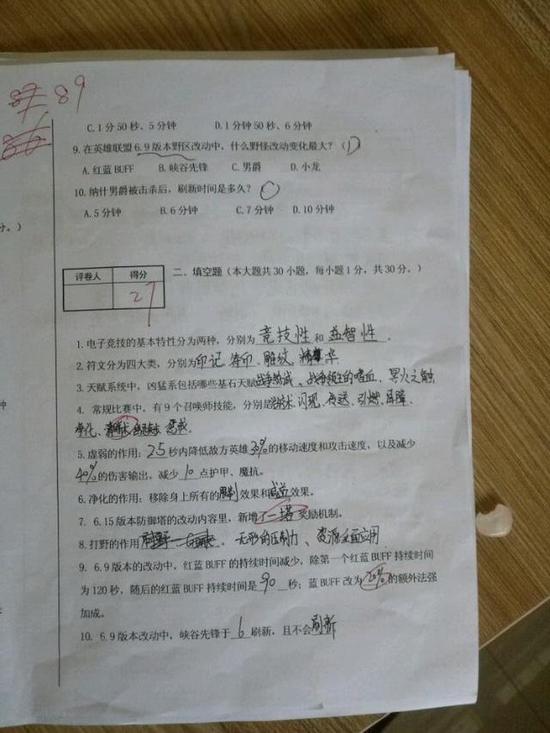 87 89
86
C.1 分 50 秒、5 分钟 D.1 分钟 50 秒、6 分钟
9. 在英雄联盟 6.9 版本野区改动中，什么野怪改动变化最大？（D）
A. 红蓝 BUFF B. 峡谷先锋 C. 男爵 D. 小龙
10. 纳什男爵被击杀后，刷新时间是多久？（）
A.5 分钟 B.6 分钟 C.7 分钟 D.10 分钟
分。）
评卷人 得分
27
二、填空题（本大题共 30 小题，每小题 1 分，共 30 分。）
1. 电子竞技的基本特性分为两种，分别为 竞技性 和 益智性 。
2. 符文分为四大类，分别为印记、符印、雕纹、精华
3. 天赋系统中，凶猛系包括哪些基石天赋战争热诚、战争领主的嗜血、黑火之触
4. 常规比赛中，有 9 个召唤师技能，分别是治疗术、闪现、传送、引燃、屏障、
净化、惩戒。
5. 虚弱的作用：2.5 秒内降低敌方英雄30%的移动速度和攻击速度，以及减少
40%的伤害输出，减少 10 点护甲、魔抗。
6. 净化的作用：移除身上所有的限制效果和减益效果。
7. 6.15 版本防御塔的改动内容里，新增了一塔奖励机制。
8. 打野的作用 无形的压制力、资源全面应用
9. 6.9 版本的改动中，红蓝 BUFF 的持续时间减少，除第一个红蓝 BUFF 持续时间
为 120 秒，随后的红蓝 BUFF 持续时间是 90 秒；蓝 BUFF 改为 20% 的额外法强
加成。
10. 6.9 版本改动中，峡谷先锋于 6 刷新，且不会刷新
钟